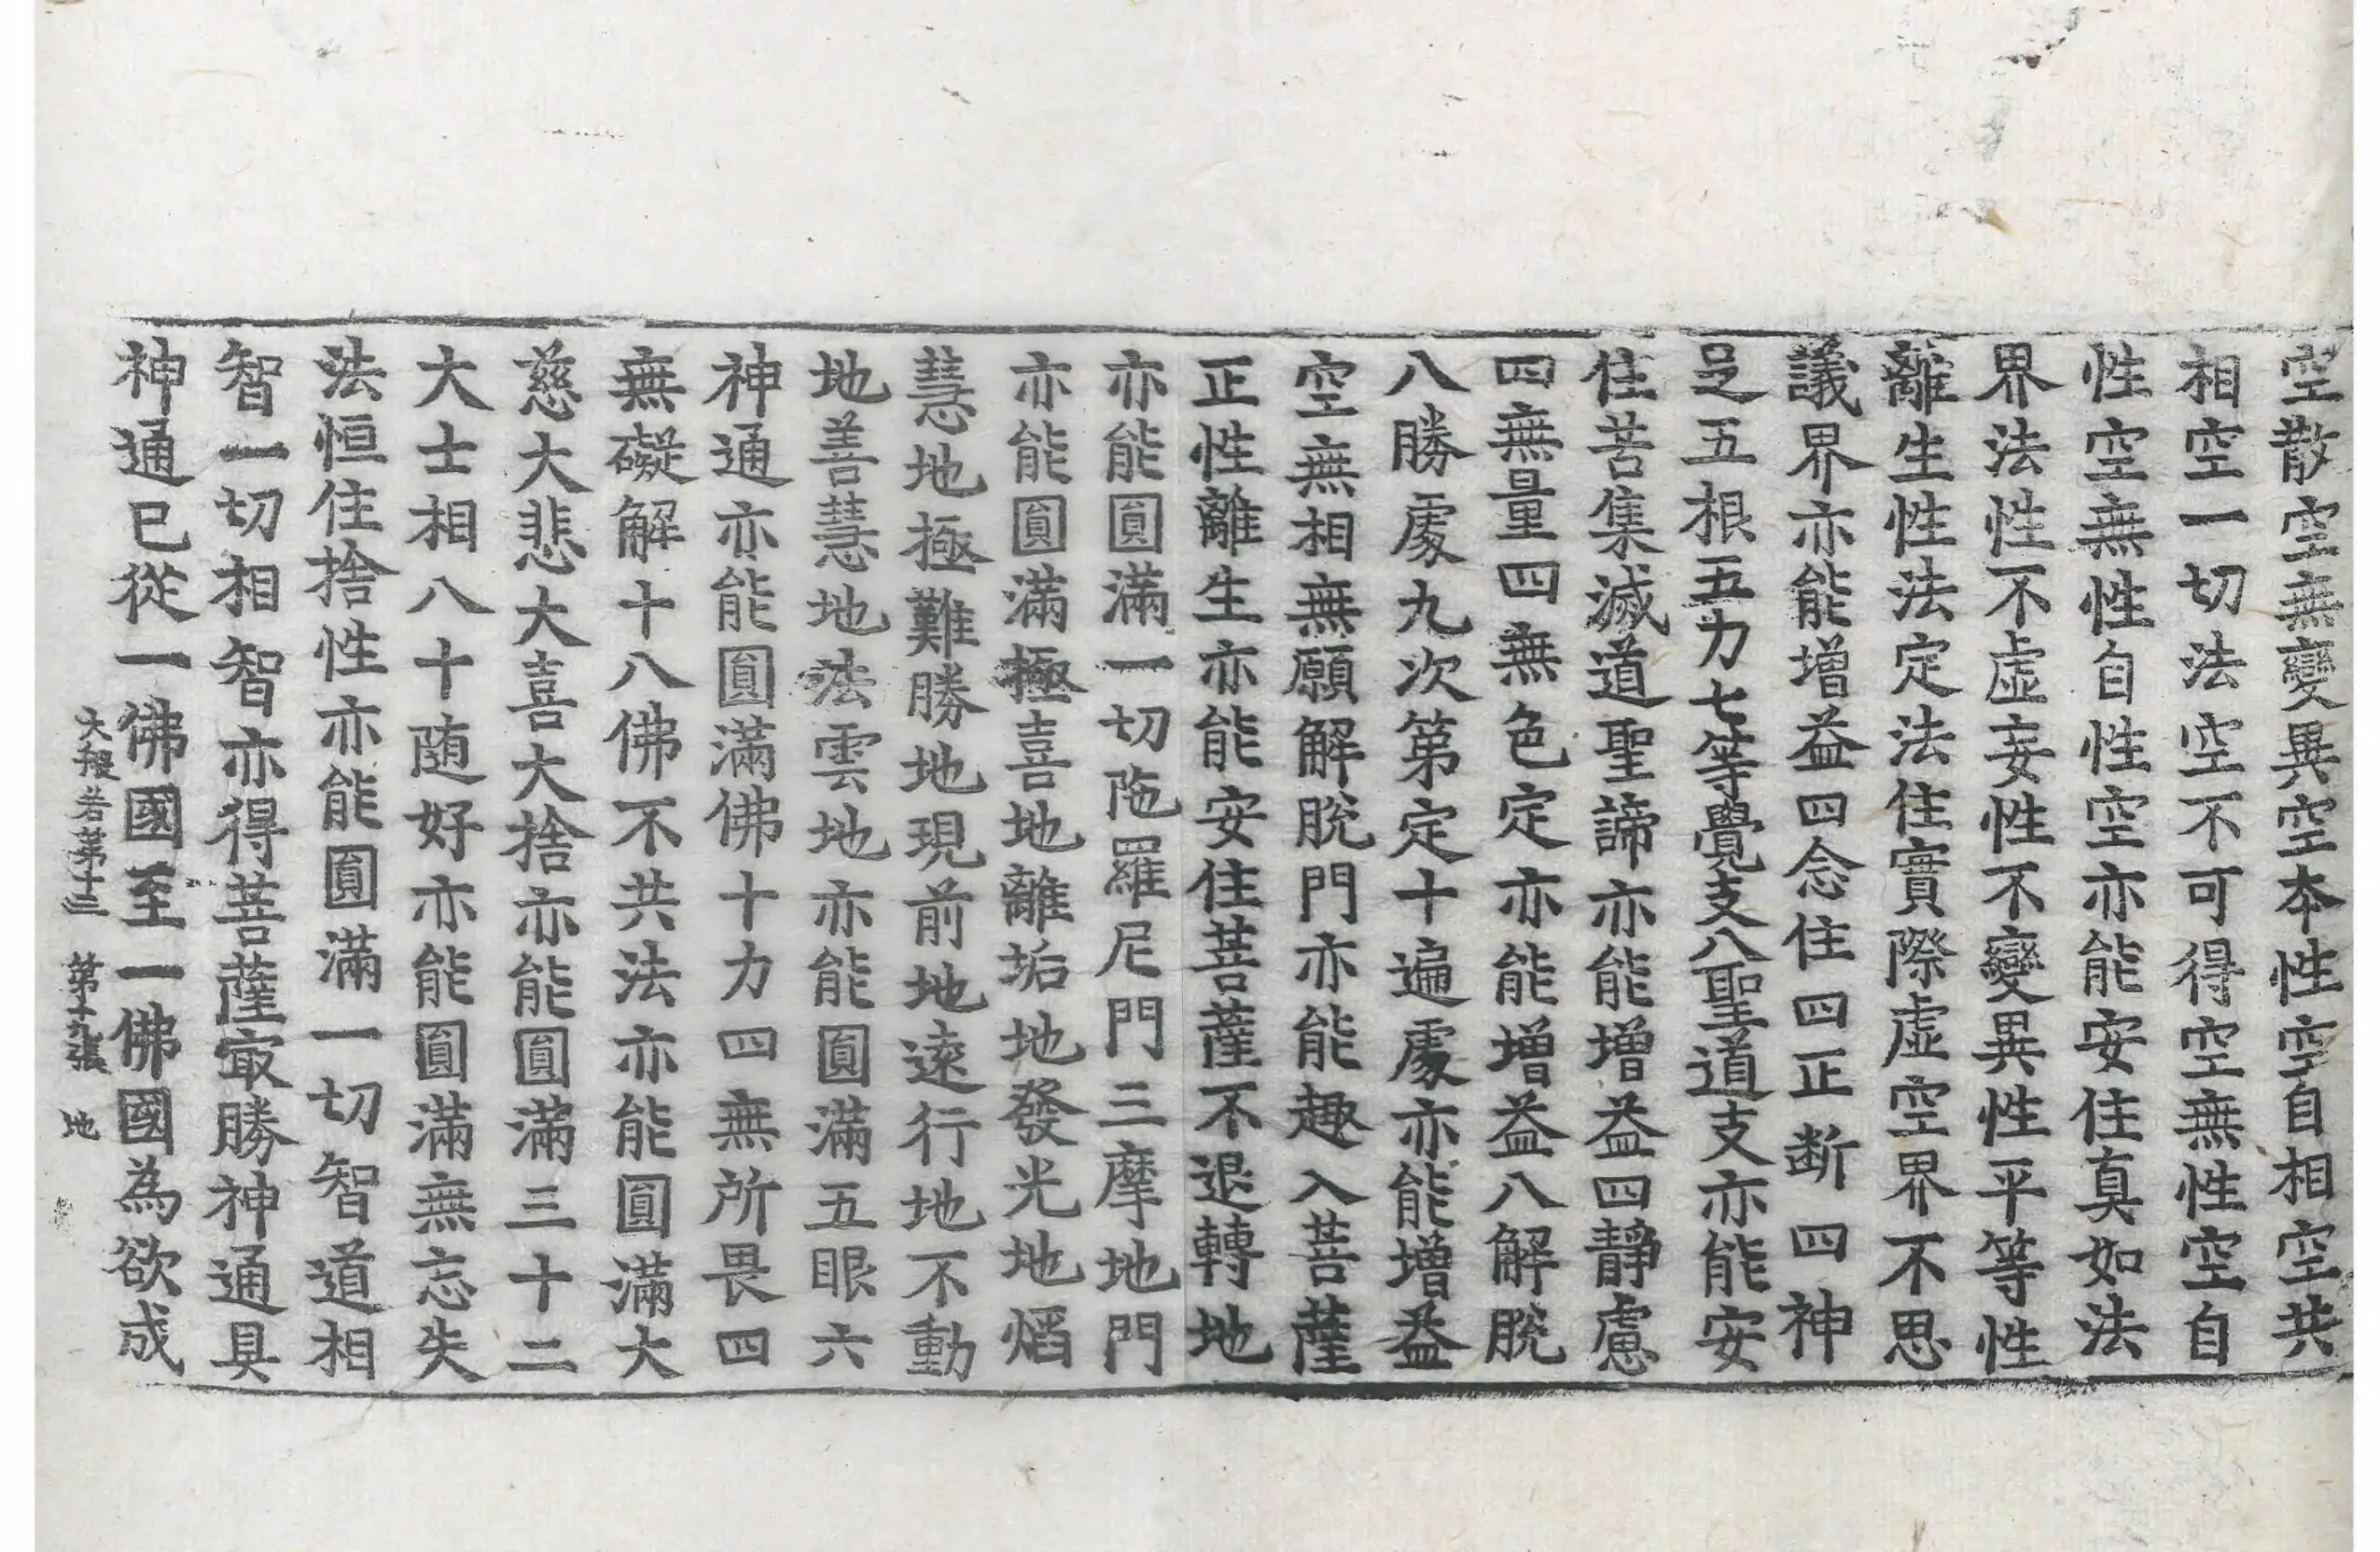 空散空無變異空本性空自相空共
相空一切法空不可得空無性空自
性空無性自性空亦能安住真如法
界法性不虛妄性不變異性平等性
離生性法定法住實際虛空界不思
議界亦能增益四念住四正断四神
足五根五力七等覺支八聖道支亦能安
住苦集滅道聖諦亦能增益四靜慮
四無量四無色定亦能增益八解脫
八勝處九次第定十遍處亦能增益
空無相無願解脫門亦能趣入菩薩
正性離生亦能安住菩薩不退轉地
亦能圓滿一切陁羅尼門三摩地門
亦能圓滿極喜地離垢地發光地焰
慧地極難勝地現前地遠行地不動
地善慧地法雲地亦能圓滿五眼六
神通亦能圓滿佛十力四無所畏四
無礙解十八佛不共法亦能圓滿大
慈大悲大喜大捨亦能圓滿三十二
大士相八十随好亦能圓滿無忘失
法恒住捨性亦能圓滿一切智道相
智一切相智亦得菩薩㝡勝神通具
神通已從一佛國至一佛國為欲成
大般若第十三 第十九張 地